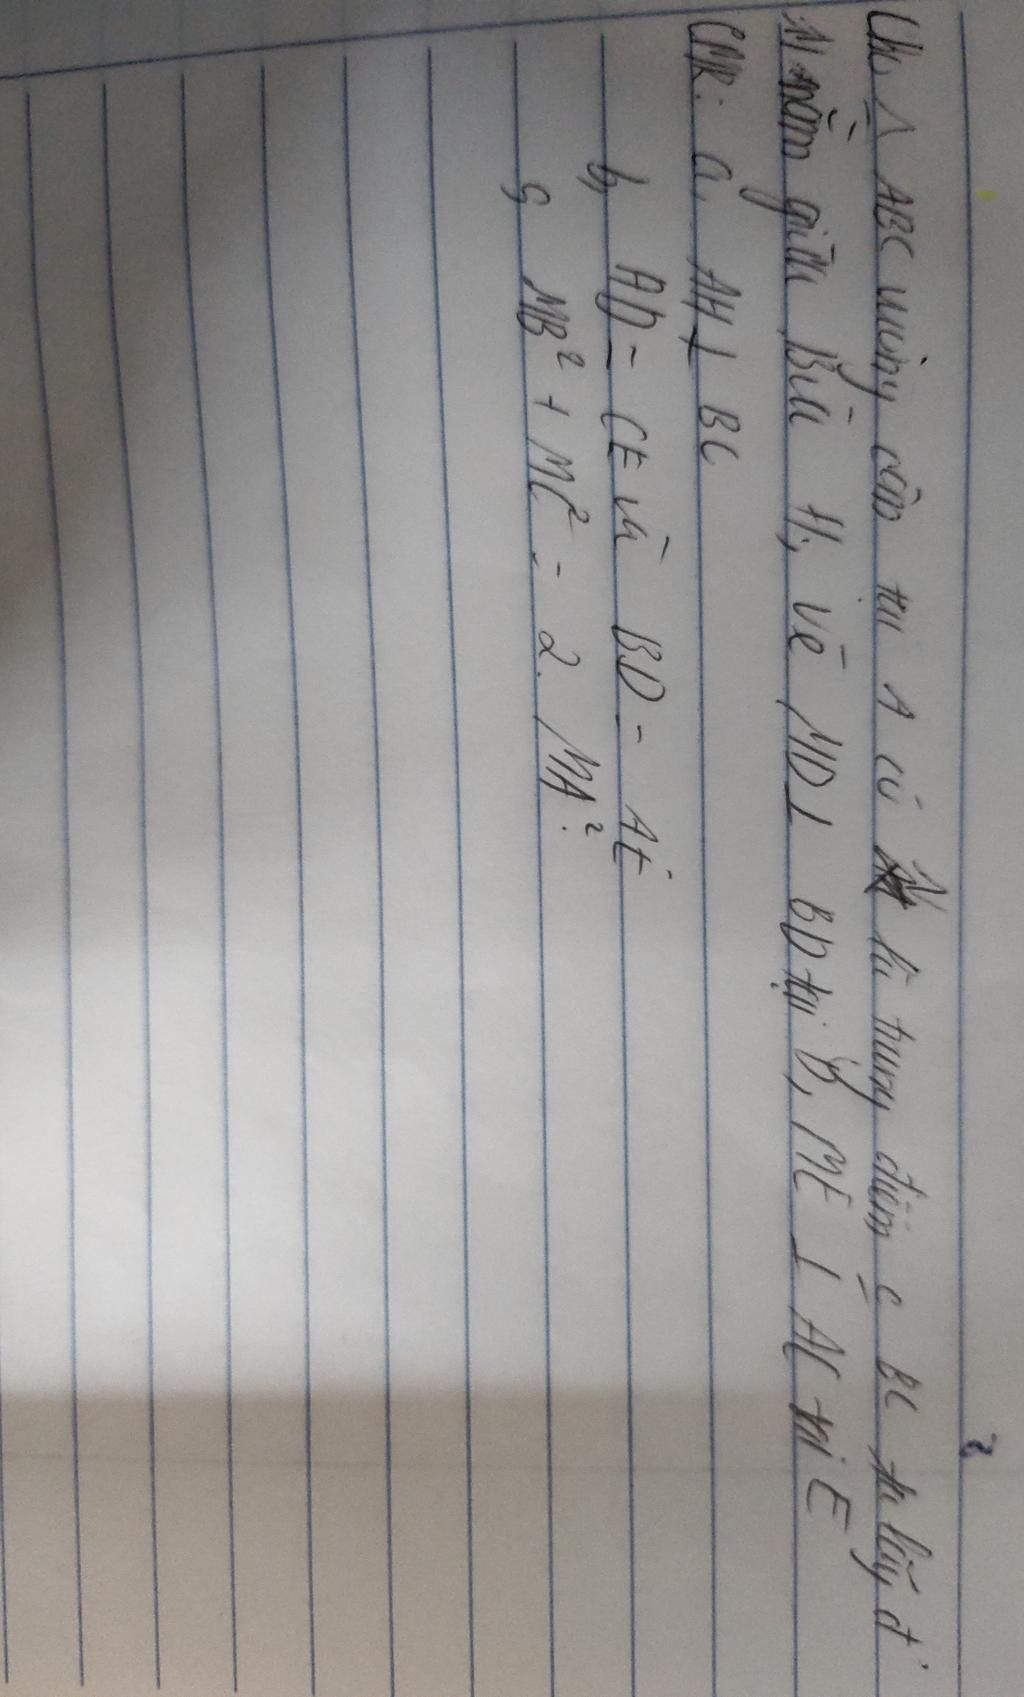 Cho △ ABC vuông cân tại A có H là trung điểm c BC trên lấy đ'
M nằm giữa B và H, vẽ MD ⊥ BD tại D, ME ⊥ AC tại E
CMR: a, AH ⊥ BC
b, AD = CE và BD = AE
c, MB² + MC² = 2. MA².